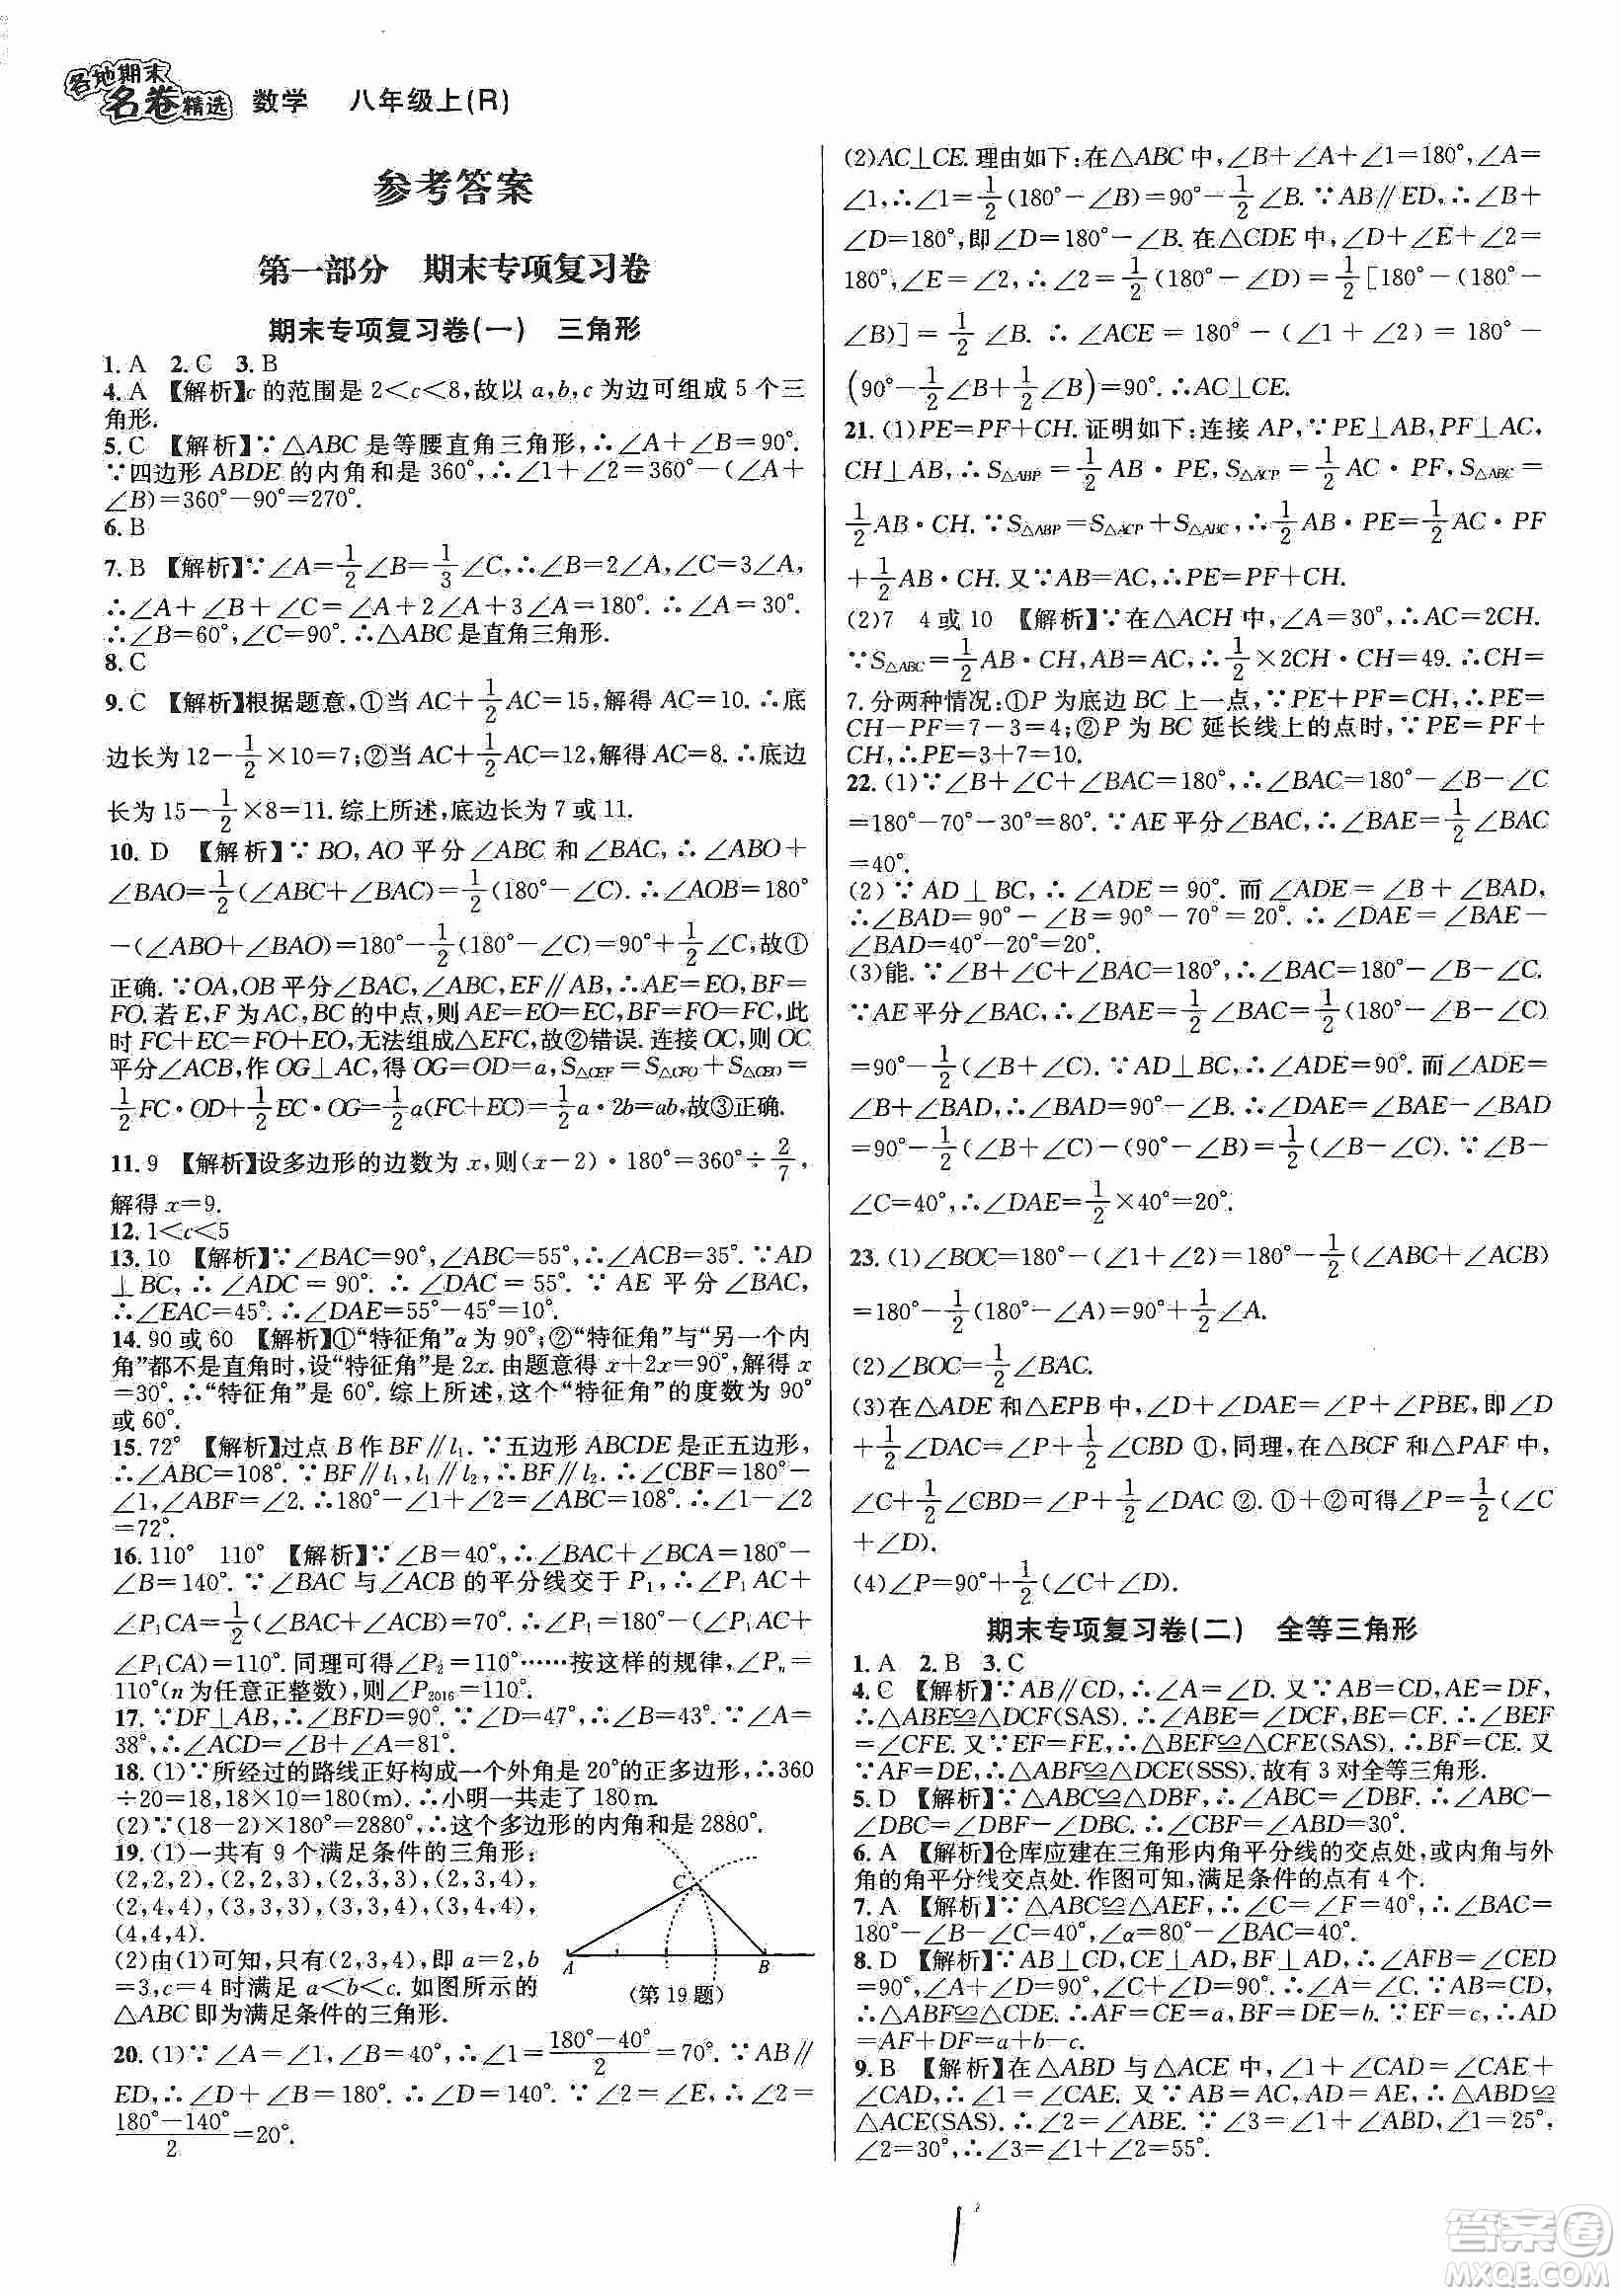 各地期末
名卷精选 数学 八年级上(R)
参考答案
第一部分 期末专项复习卷
期末专项复习卷(一) 三角形
1. A 2. C 3. B
4. A 【解析】c 的范围是 2<c<8,故以 a,b,c 为边可组成 5 个三
角形.
5. C 【解析】∵△ABC 是等腰直角三角形,∴∠A+∠B=90°.
∵四边形 ABDE 的内角和是 360°,∴∠1+∠2=360°-(∠A+
∠B)=360°-90°=270°.
6. B
7. B 【解析】∵∠A=1/2∠B=1/3∠C,∴∠B=2∠A,∠C=3∠A,
∴∠A+∠B+∠C=∠A+2∠A+3∠A=180°.∴∠A=30°.
∴∠B=60°,∠C=90°.∴△ABC 是直角三角形.
8. C
9. C 【解析】根据题意,①当 AC+1/2AC=15,解得 AC=10.∴底
边长为 12-1/2×10=7;②当 AC+1/2AC=12,解得 AC=8.∴底边
长为 15-1/2×8=11.综上所述,底边长为 7 或 11.
10. D 【解析】∵BO,AO 平分∠ABC 和∠BAC,∴∠ABO+
∠BAO=1/2(∠ABC+∠BAC)=1/2(180°-∠C).∴∠AOB=180°
-(∠ABO+∠BAO)=180°-1/2(180°-∠C)=90°+1/2∠C,故①
正确.∵OA,OB 平分∠BAC,∠ABC,EF∥AB,∴AE=EO,BF=
FO.若 E,F 为 AC,BC 的中点,则 AE=EO=EC,BF=FO=FC,此
时 FC+EC=FO+EO,无法组成△EFC,故②错误.连接 OC,则 OC
平分∠ACB,作 OG⊥AC,得 OG=OD=a,S△CEF=S△CFO+S△CEO=
1/2FC·OD+1/2EC·OG=1/2a(FC+EC)=1/2a·2b=ab,故③正确.
11. 9 【解析】设多边形的边数为 x,则(x-2)·180°=360°÷2/7,
解得 x=9.
12. 1<c<5
13. 10 【解析】∵∠BAC=90°,∠ABC=55°,∴∠ACB=35°.∵AD
⊥BC,∴∠ADC=90°.∴∠DAC=55°.∵AE 平分∠BAC,
∴∠EAC=45°.∴∠DAE=55°-45°=10°.
14. 90 或 60 【解析】①“特征角”α 为 90°;②“特征角”与“另一个内
角”都不是直角时,设“特征角”是 2x.由题意得 x+2x=90°,解得 x
=30°.∴“特征角”是 60°.综上所述,这个“特征角”的度数为 90°
或 60°.
15. 72° 【解析】过点 B 作 BF∥l₁.∵五边形 ABCDE 是正五边形,
∴∠ABC=108°.∵BF∥l₁,l₁∥l₂,∴BF∥l₂.∴∠CBF=180°-
∠1,∠ABF=∠2.∴180°-∠1+∠2=∠ABC=108°.∴∠1-∠2
=72°.
16. 110° 110° 【解析】∵∠B=40°,∴∠BAC+∠BCA=180°-
∠B=140°.∵∠BAC 与∠ACB 的平分线交于 P₁,∴∠P₁AC+
∠P₁CA=1/2(∠BAC+∠ACB)=70°.∴∠P₁=180°-(∠P₁AC+
∠P₁CA)=110°.同理可得∠P₂=110°……按这样的规律,∠Pₙ=
110°(n 为任意正整数),则∠P₂₀₁₆=110°.
17. ∵DF⊥AB,∴∠BFD=90°.∵∠D=47°,∴∠B=43°.∵∠A=
38°,∴∠ACD=∠B+∠A=81°.
18. (1)∵所经过的路线正好构成一个外角是 20°的正多边形,∴360
÷20=18,18×10=180(m).∴小明一共走了 180 m.
(2)∵(18-2)×180°=2880°,∴这个多边形的内角和是 2880°.
19. (1)一共有 9 个满足条件的三角形:
(2,2,2),(2,2,3),(2,3,3),(2,3,4),
(2,4,4),(3,3,3),(3,3,4),(3,4,4),
(4,4,4).
(2)由(1)可知,只有(2,3,4),即 a=2,b
=3,c=4 时满足 a<b<c.如图所示的
△ABC 即为满足条件的三角形.
C
A B
(第 19 题)
20. (1)∵∠A=∠1,∠B=40°,∴∠1=(180°-40°)/2=70°.∵AB∥
ED,∴∠D+∠B=180°.∴∠D=140°.∵∠2=∠E,∴∠2=
(180°-140°)/2=20°.
(2)AC⊥CE.理由如下:在△ABC 中,∠B+∠A+∠1=180°,∠A=
∠1,∴∠1=1/2(180°-∠B)=90°-1/2∠B.∵AB∥ED,∴∠B+
∠D=180°,即∠D=180°-∠B.在△CDE 中,∠D+∠E+∠2=
180°,∠E=∠2,∴∠2=1/2(180°-∠D)=1/2[180°-(180°-
∠B)]=1/2∠B.∴∠ACE=180°-(∠1+∠2)=180°-
(90°-1/2∠B+1/2∠B)=90°.∴AC⊥CE.
21. (1)PE=PF+CH.证明如下:连接 AP,∵PE⊥AB,PF⊥AC,
CH⊥AB,∴S△ABP=1/2AB·PE,S△ACP=1/2AC·PF,S△ABC=
1/2AB·CH.∵S△ABP=S△ACP+S△ABC,∴1/2AB·PE=1/2AC·PF
+1/2AB·CH.又∵AB=AC,∴PE=PF+CH.
(2)7 4 或 10 【解析】∵在△ACH 中,∠A=30°,∴AC=2CH.
∵S△ABC=1/2AB·CH,AB=AC,∴1/2×2CH·CH=49.∴CH=
7.分两种情况:①P 为底边 BC 上一点,∵PE+PF=CH,∴PE=
CH-PF=7-3=4;②P 为 BC 延长线上的点时,∵PE=PF+
CH,∴PE=3+7=10.
22. (1)∵∠B+∠C+∠BAC=180°,∴∠BAC=180°-∠B-∠C
=180°-70°-30°=80°.∵AE 平分∠BAC,∴∠BAE=1/2∠BAC
=40°.
(2)∵AD⊥BC,∴∠ADE=90°.而∠ADE=∠B+∠BAD,
∴∠BAD=90°-∠B=90°-70°=20°.∴∠DAE=∠BAE-
∠BAD=40°-20°=20°.
(3)能.∵∠B+∠C+∠BAC=180°,∴∠BAC=180°-∠B-∠C.
∵AE 平分∠BAC,∴∠BAE=1/2∠BAC=1/2(180°-∠B-∠C)
=90°-1/2(∠B+∠C).∵AD⊥BC,∴∠ADE=90°.而∠ADE=
∠B+∠BAD,∴∠BAD=90°-∠B.∴∠DAE=∠BAE-∠BAD
=90°-1/2(∠B+∠C)-(90°-∠B)=1/2(∠B-∠C).∵∠B-
∠C=40°,∴∠DAE=1/2×40°=20°.
23. (1)∠BOC=180°-(∠1+∠2)=180°-1/2(∠ABC+∠ACB)
=180°-1/2(180°-∠A)=90°+1/2∠A.
(2)∠BOC=1/2∠BAC.
(3)在△ADE 和△EPB 中,∠D+∠DAE=∠P+∠PBE,即∠D
+1/2∠DAC=∠P+1/2∠CBD ①,同理,在△BCF 和△PAF 中,
∠C+1/2∠CBD=∠P+1/2∠DAC ②.①+②可得∠P=1/2(∠C
+∠D).
(4)∠P=90°+1/2(∠C+∠D).
期末专项复习卷(二) 全等三角形
1. A 2. B 3. C
4. C 【解析】∵AB∥CD,∴∠A=∠D.又∵AB=CD,AE=DF,
∴△ABE≌△DCF(SAS).∴∠ABE=∠DCF,BE=CF.∴∠BEF
=∠CFE.又∵EF=FE,∴△BEF≌△CFE(SAS).∴BF=CE.又
∵AF=DE,∴△ABF≌△DCE(SSS).故有 3 对全等三角形.
5. D 【解析】∵△ABC≌△DBF,∴∠ABC=∠DBF.∴∠ABC-
∠DBC=∠DBF-∠DBC.∴∠CBF=∠ABD=30°.
6. A 【解析】仓库应建在三角形内角平分线的交点处,或内角与外
角的角平分线交点处.作图可知,满足条件的点有 4 个.
7. A 【解析】∵△ABC≌△AEF,∴∠C=∠F=40°,∴∠BAC=
180°-∠B-∠C=40°,∠α=80°-∠BAC=40°.
8. D 【解析】∵AB⊥CD,CE⊥AD,BF⊥AD,∴∠AFB=∠CED
=90°,∠A+∠D=90°,∠C+∠D=90°.∴∠A=∠C.∵AB=CD,
∴△ABF≌△CDE.∴AF=CE=a,BF=DE=b.∵EF=c,∴AD
=AF+DF=a+b-c.
9. B 【解析】在△ABD 与△ACE 中,∠1+∠CAD=∠CAE+
∠CAD,∴∠1=∠CAE.又∵AB=AC,AD=AE,∴△ABD≌
△ACE(SAS).∴∠2=∠ABE.∵∠3=∠1+∠ABD,∠1=25°,
∠2=30°,∴∠3=∠1+∠2=55°.
1
答案卷
MXQE.COM